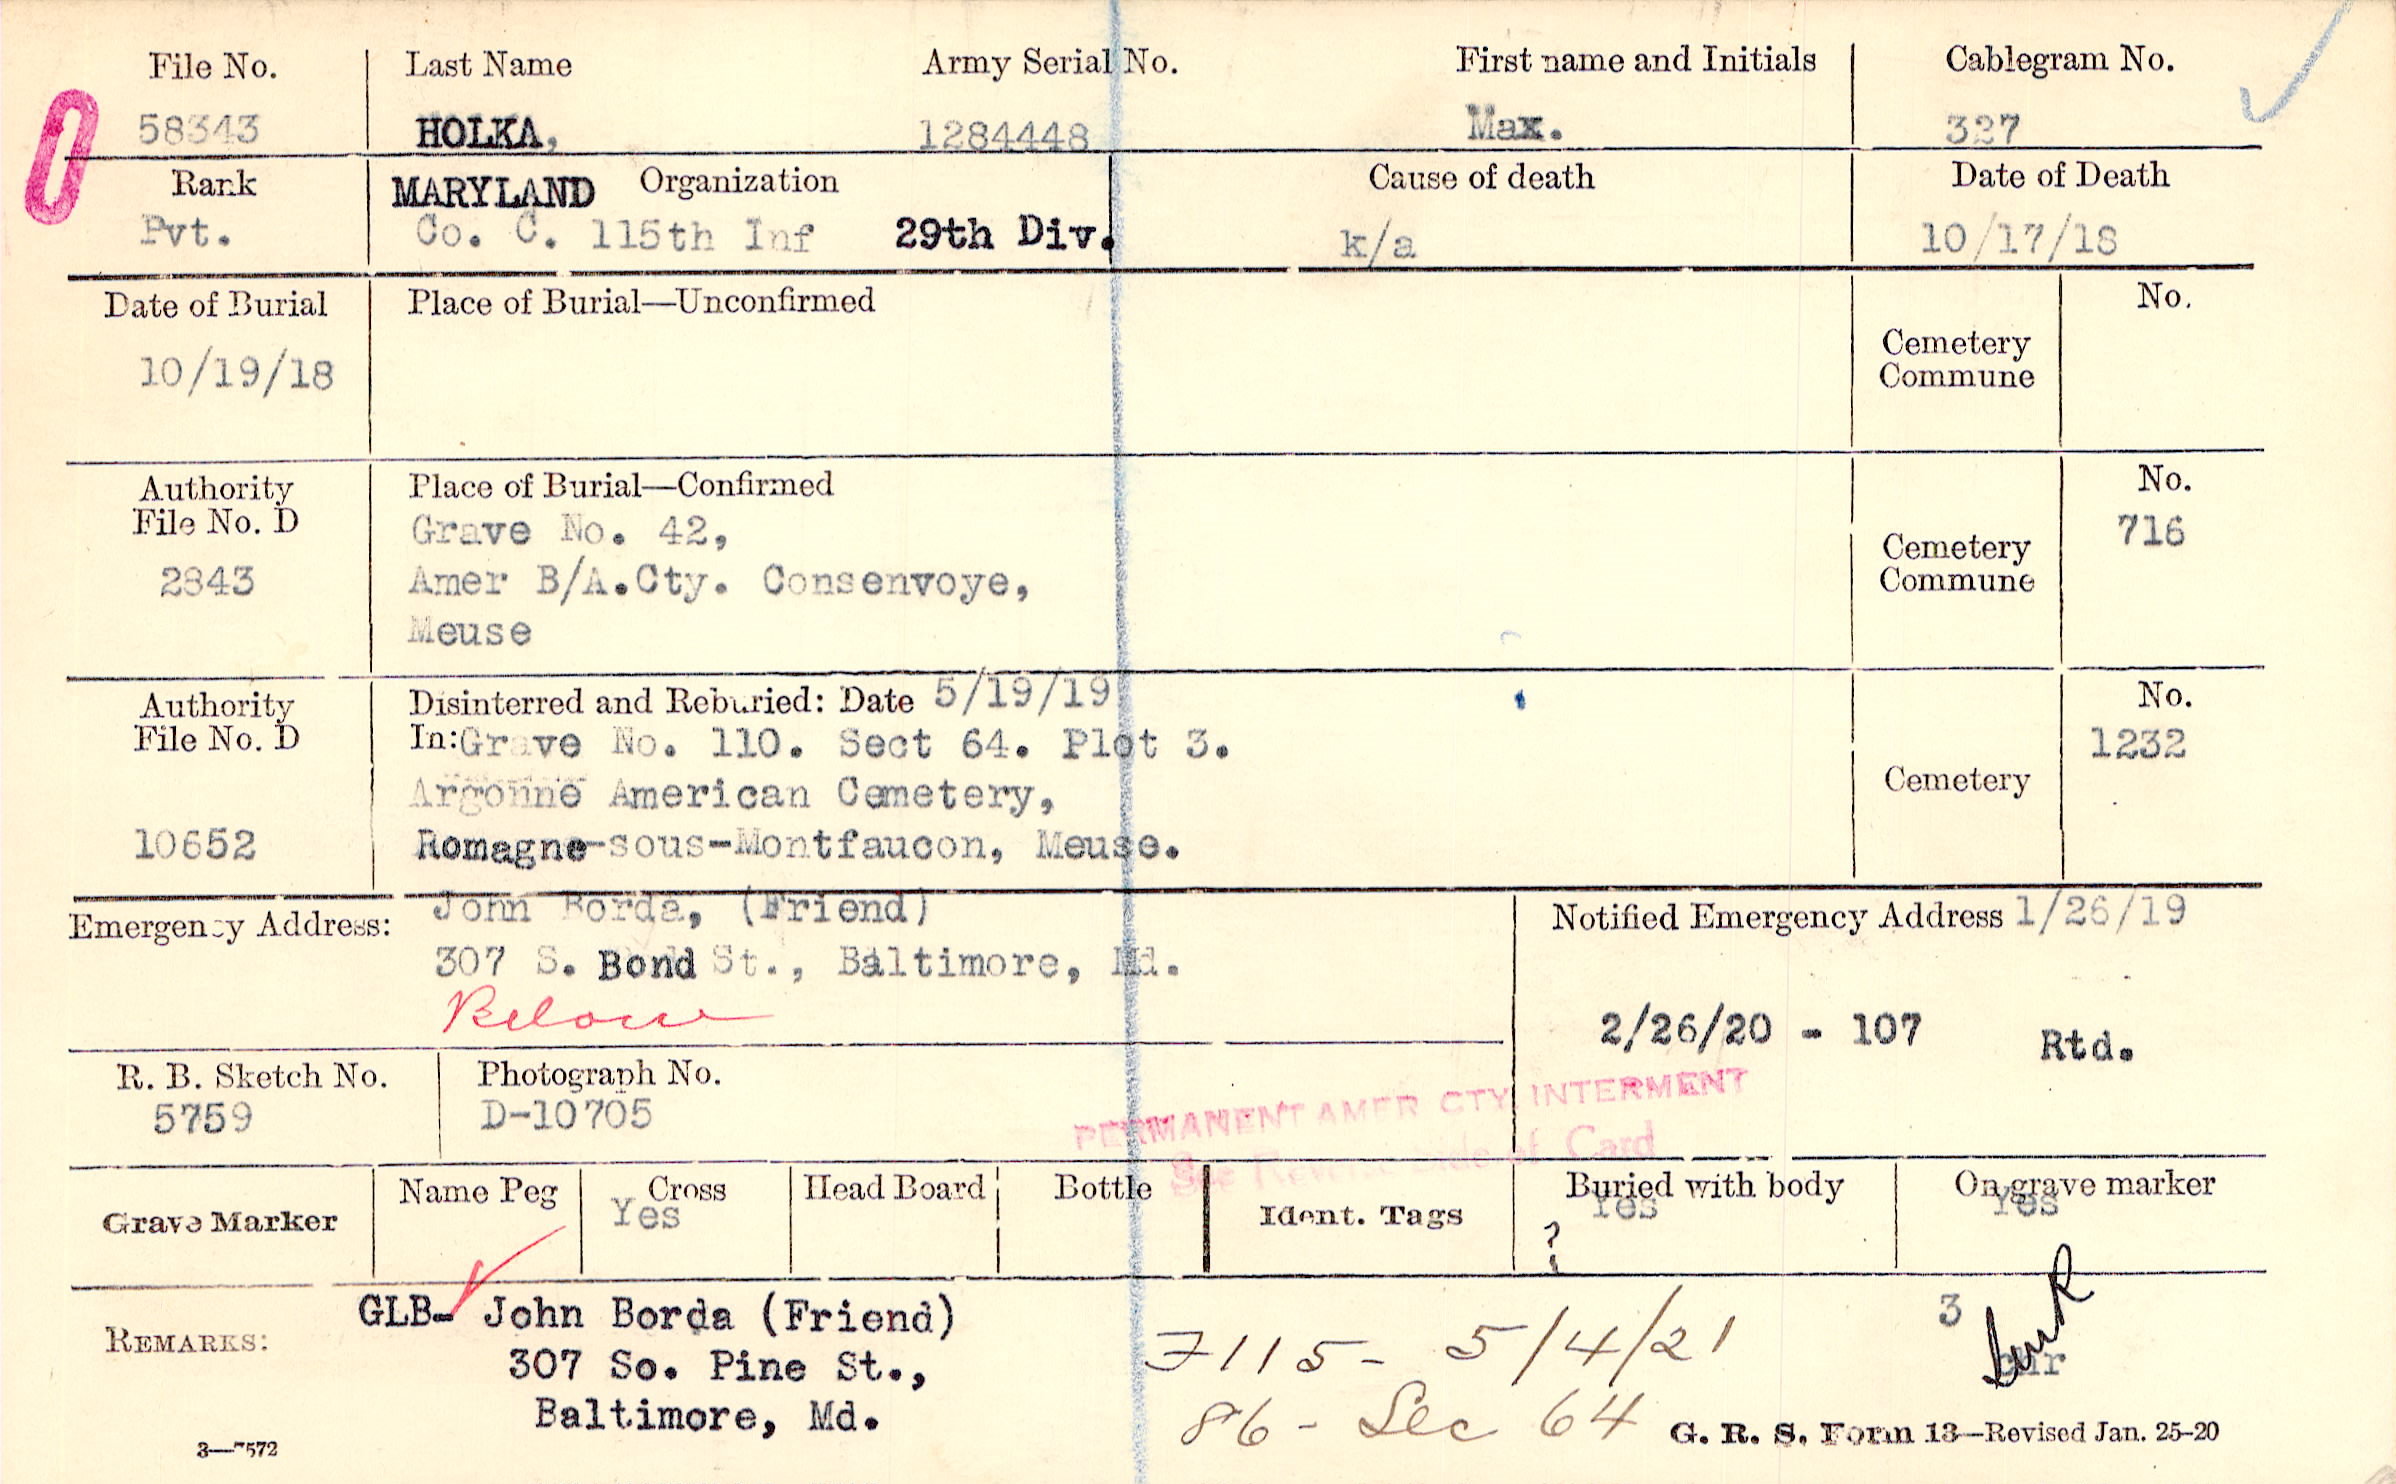 File No. Last Name Army Serial No. First name and Initials Cablegram No.
58343 HOLKA, 1284448 Max. 327
Rank MARYLAND Organization Cause of death Date of Death
Pvt. Co. C. 115th Inf 29th Div. k/a 10/17/18
Date of Burial Place of Burial—Unconfirmed No.
10/19/18 Cemetery
Commune
Authority Place of Burial—Confirmed No.
File No. D Grave No. 42, 716
2843 Amer B/A.Cty. Consenvoye, Cemetery
Commune
Meuse
Authority Disinterred and Reburied: Date 5/19/19 No.
File No. D In: Grave No. 110. Sect 64. Plot 3. 1232
Argonne American Cemetery, Cemetery
10652 Romagne-sous-Montfaucon, Meuse.
Emergency Address: John Borda, (Friend) Notified Emergency Address 1/26/19
307 S. Bond St., Baltimore, Md.
Below 2/26/20 - 107 Rtd.
R. B. Sketch No. Photograph No.
5759 D-10705
PERMANENT AMER CTY. INTERMENT
See Reverse Side of Card
Grave Marker Name Peg Cross Head Board Bottle Ident. Tags Buried with body On grave marker
Yes Yes Yes
?
REMARKS: GLB- John Borda (Friend) 3
307 So. Pine St., 7115- 5/4/21
Baltimore, Md. 86- Sec 64
3—7572 G. R. S. Form 13—Revised Jan. 25-20